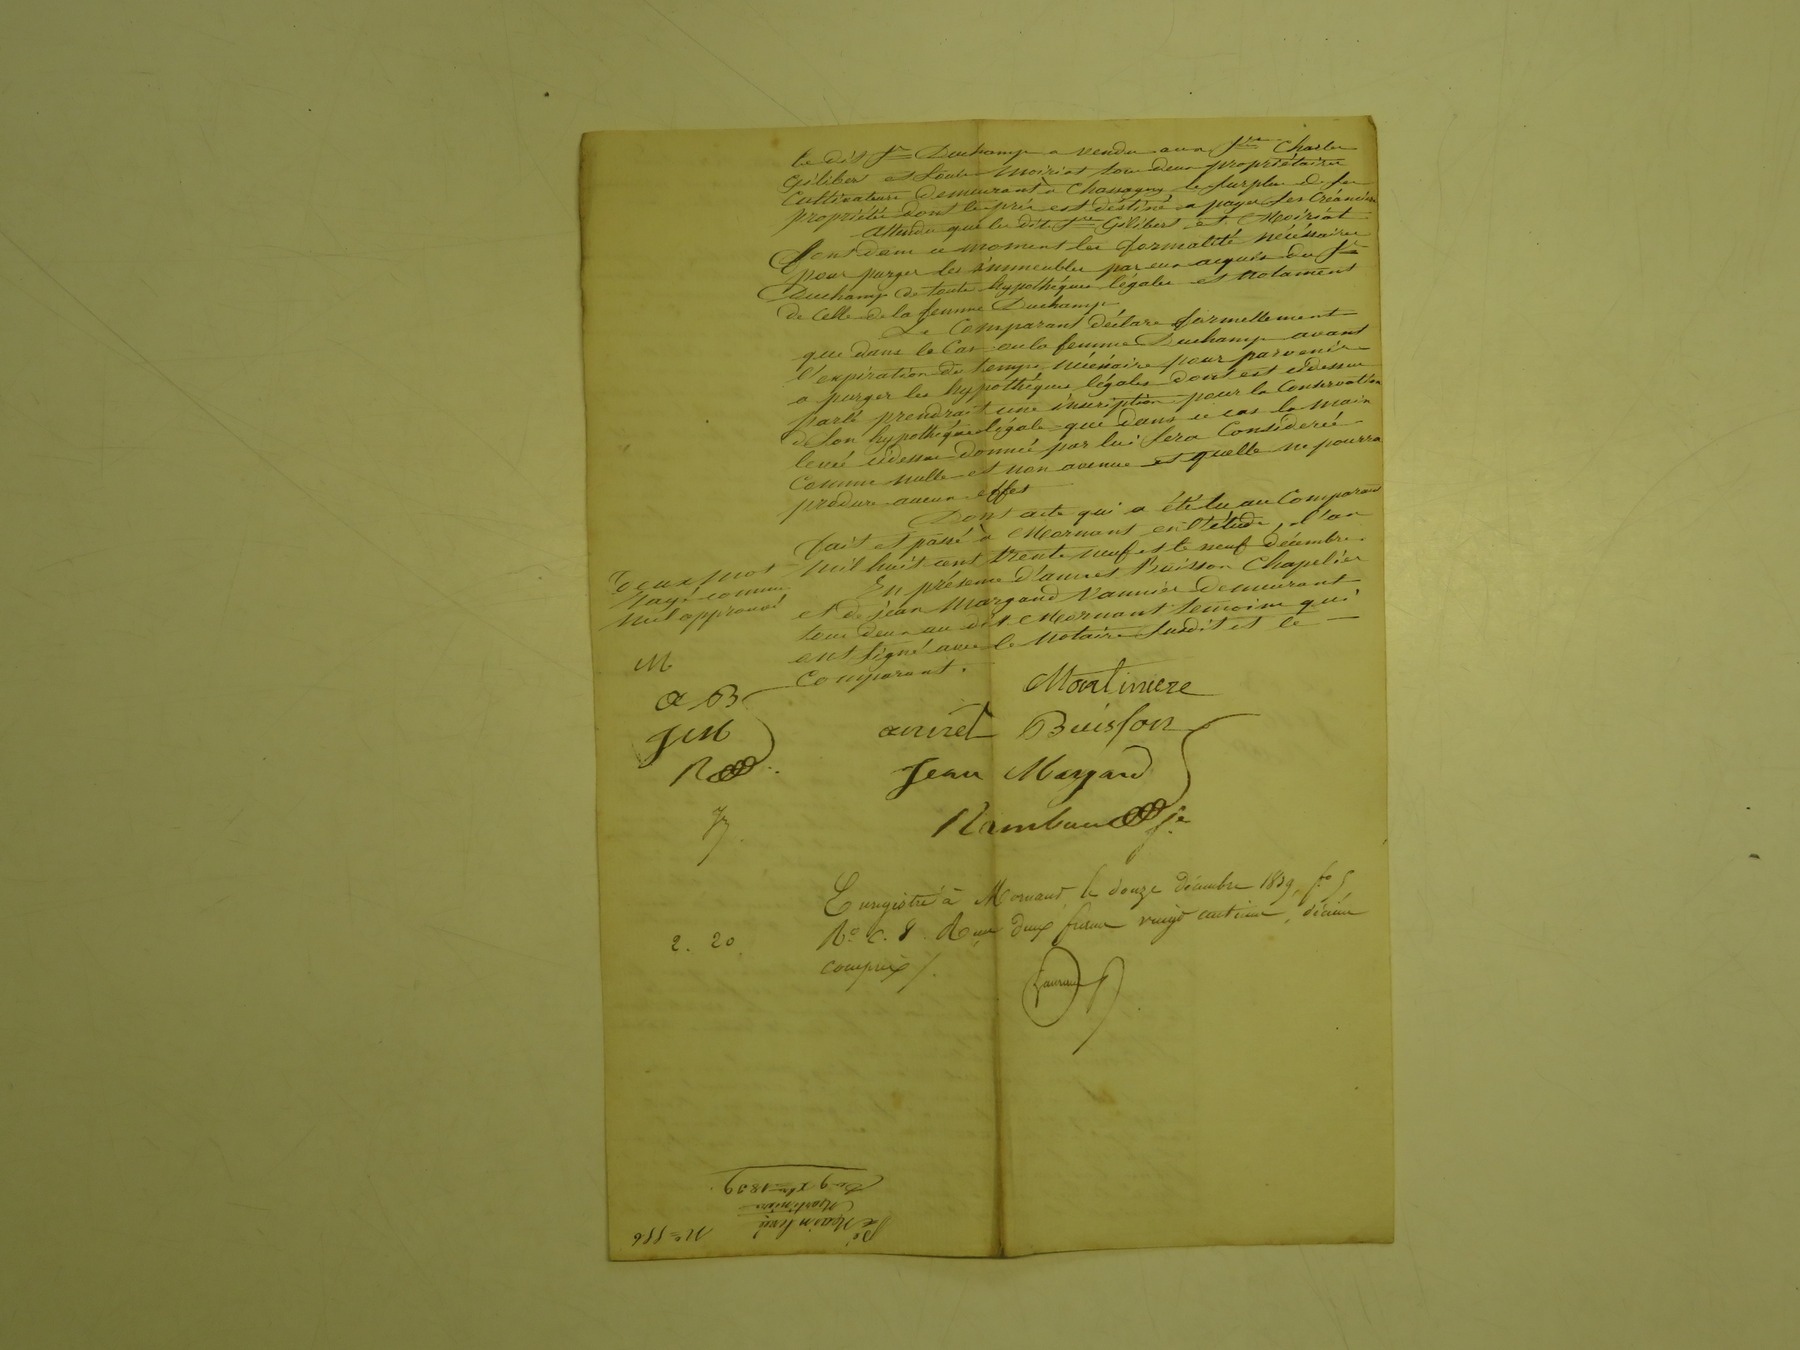 le dit Sr Duchamp a vendu aux Srs Charles
Gilibert et Louis Moiriat tous deux propriétaires
Cultivateurs demeurant à Chassagny le surplus de ses
propriétés dont le prix est destiné a payer ses Créanciers
Attendu que les dits Srs Gilibert et Moiriat
font dans ce moment les formalités nécéssaires
pour purger les immeubles par eux acquis du Sr
Duchamp de toute hypothèques légales et Notament
de Celle de la femme Duchamp
Le Comparant déclare formellement
que dans le Cas ou la femme Duchamp avant
l'expiration du temps nécéssaire pour parvenir
a purger les hypothèques légales dont est cidessus
parlé prendrait une inscription pour la Conservation
de son hypothèque légale que dans ce cas la main
levée cidessus donnée par lui sera Considerée
Comme nulle et non avenue et quelle ne pourra
produire aucun effet
Dont acte qui a été lu au Comparant
fait et passé à Mornant en l'étude, l'an
mil huit cent trente neuf et le neuf décembre
En présence d'annet Buisson Chapelier
et de jean Margand Vannier demeurant
tous deux au dit Mornant témoins qui
ont signé avec le Notaire susdit et le
Comparant.
Deux mots
rayé comme
nul approuvé
M
a B
J M
R
Martiniere
annet Buisson
Jean Margand
Enregistré à Mornant le douze décembre 1839, fo 5
Ro C. 8. Reçu deux francs vingt centimes, décime
compris.
2. 20
No 556
De Main levée
Martinière
Du 9 Xbre 1839